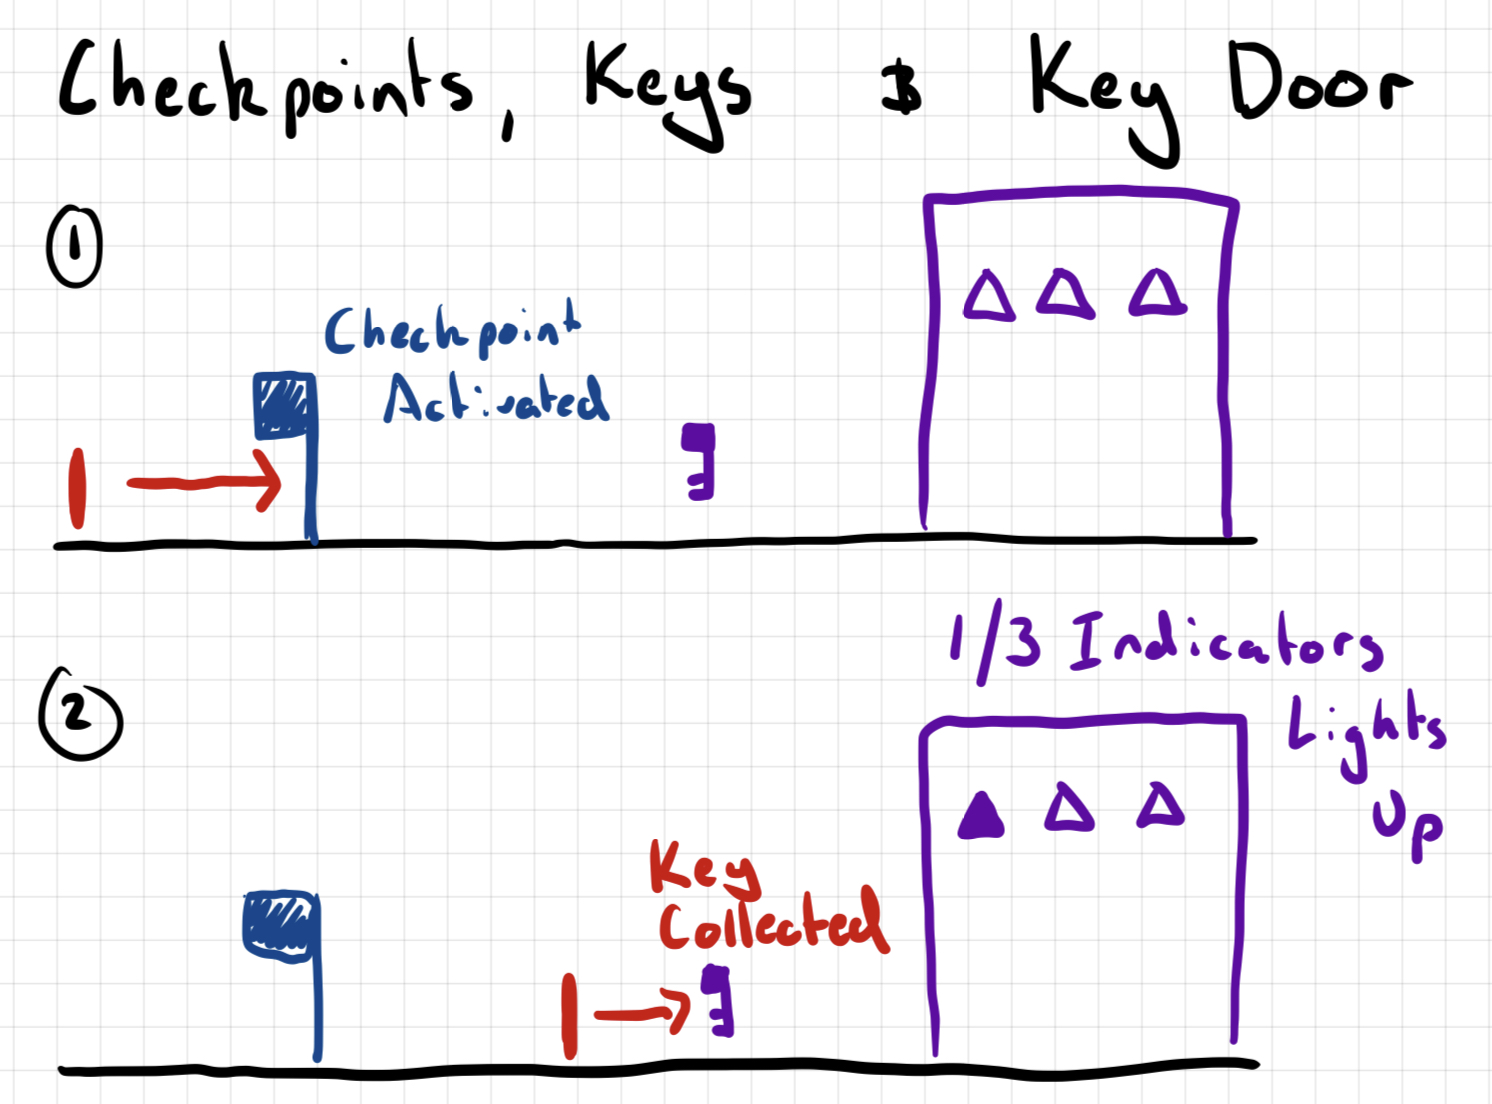 Checkpoints, Keys & Key Door
1
Checkpoint
Activated
2
1/3 Indicators
Lights
Up
Key
Collected